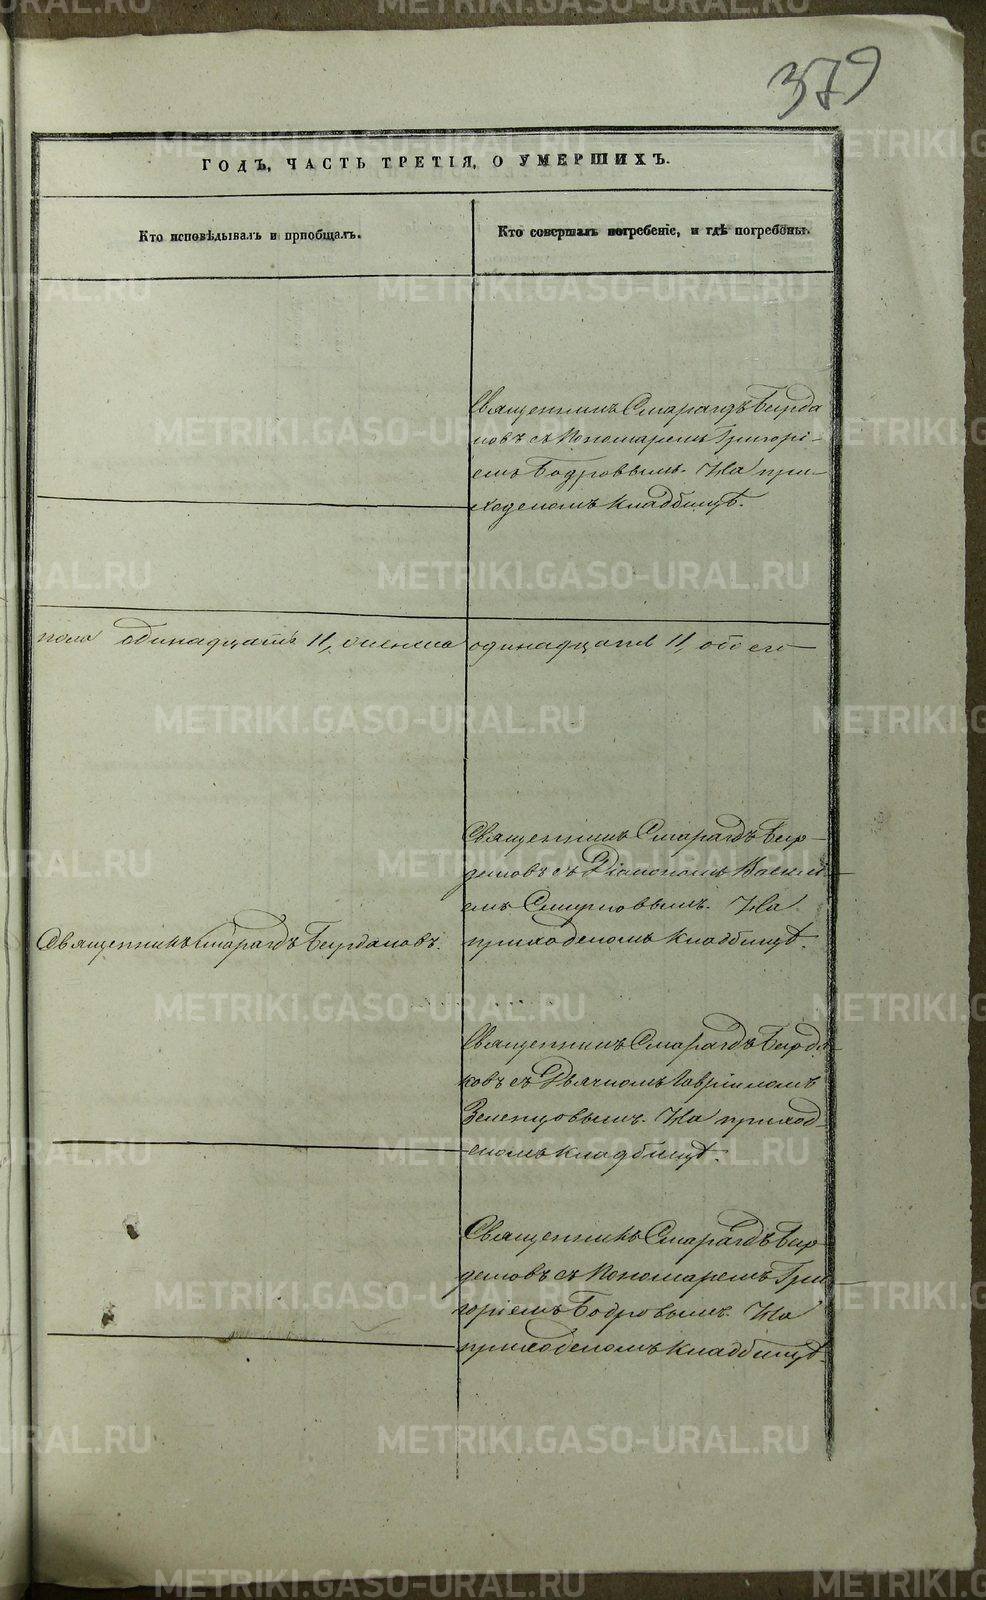 379
ГОДЪ, ЧАСТЬ ТРЕТІЯ, О УМЕРШИХЪ.
Кто исповѣдывалъ и пріобщалъ.
Кто совершалъ погребеніе, и гдѣ погребены.
Священникъ Смарагдъ Бирда
ковъ съ Пономаремъ Григорі-
емъ Бодровымъ. На при-
ходскомъ кладбищѣ.
пола одинадцать 11, женска одинадцать 11, обоего
Священникъ Смарагдъ Бир-
даковъ съ Діакономъ Василі-
емъ Смирновымъ. На
приходскомъ кладбищѣ.
Священникъ Смарагдъ Бирдаковъ.
Священникъ Смарагдъ Бирда-
ковъ съ Дьячкомъ Гавріиломъ
Зеленцовымъ. На приход-
скомъ кладбищѣ.
Священникъ Смарагдъ Бир-
даковъ съ Пономаремъ Гри-
горіемъ Бодровымъ. На
приходскомъ кладбищѣ.
METRIKI.GASO-URAL.RU